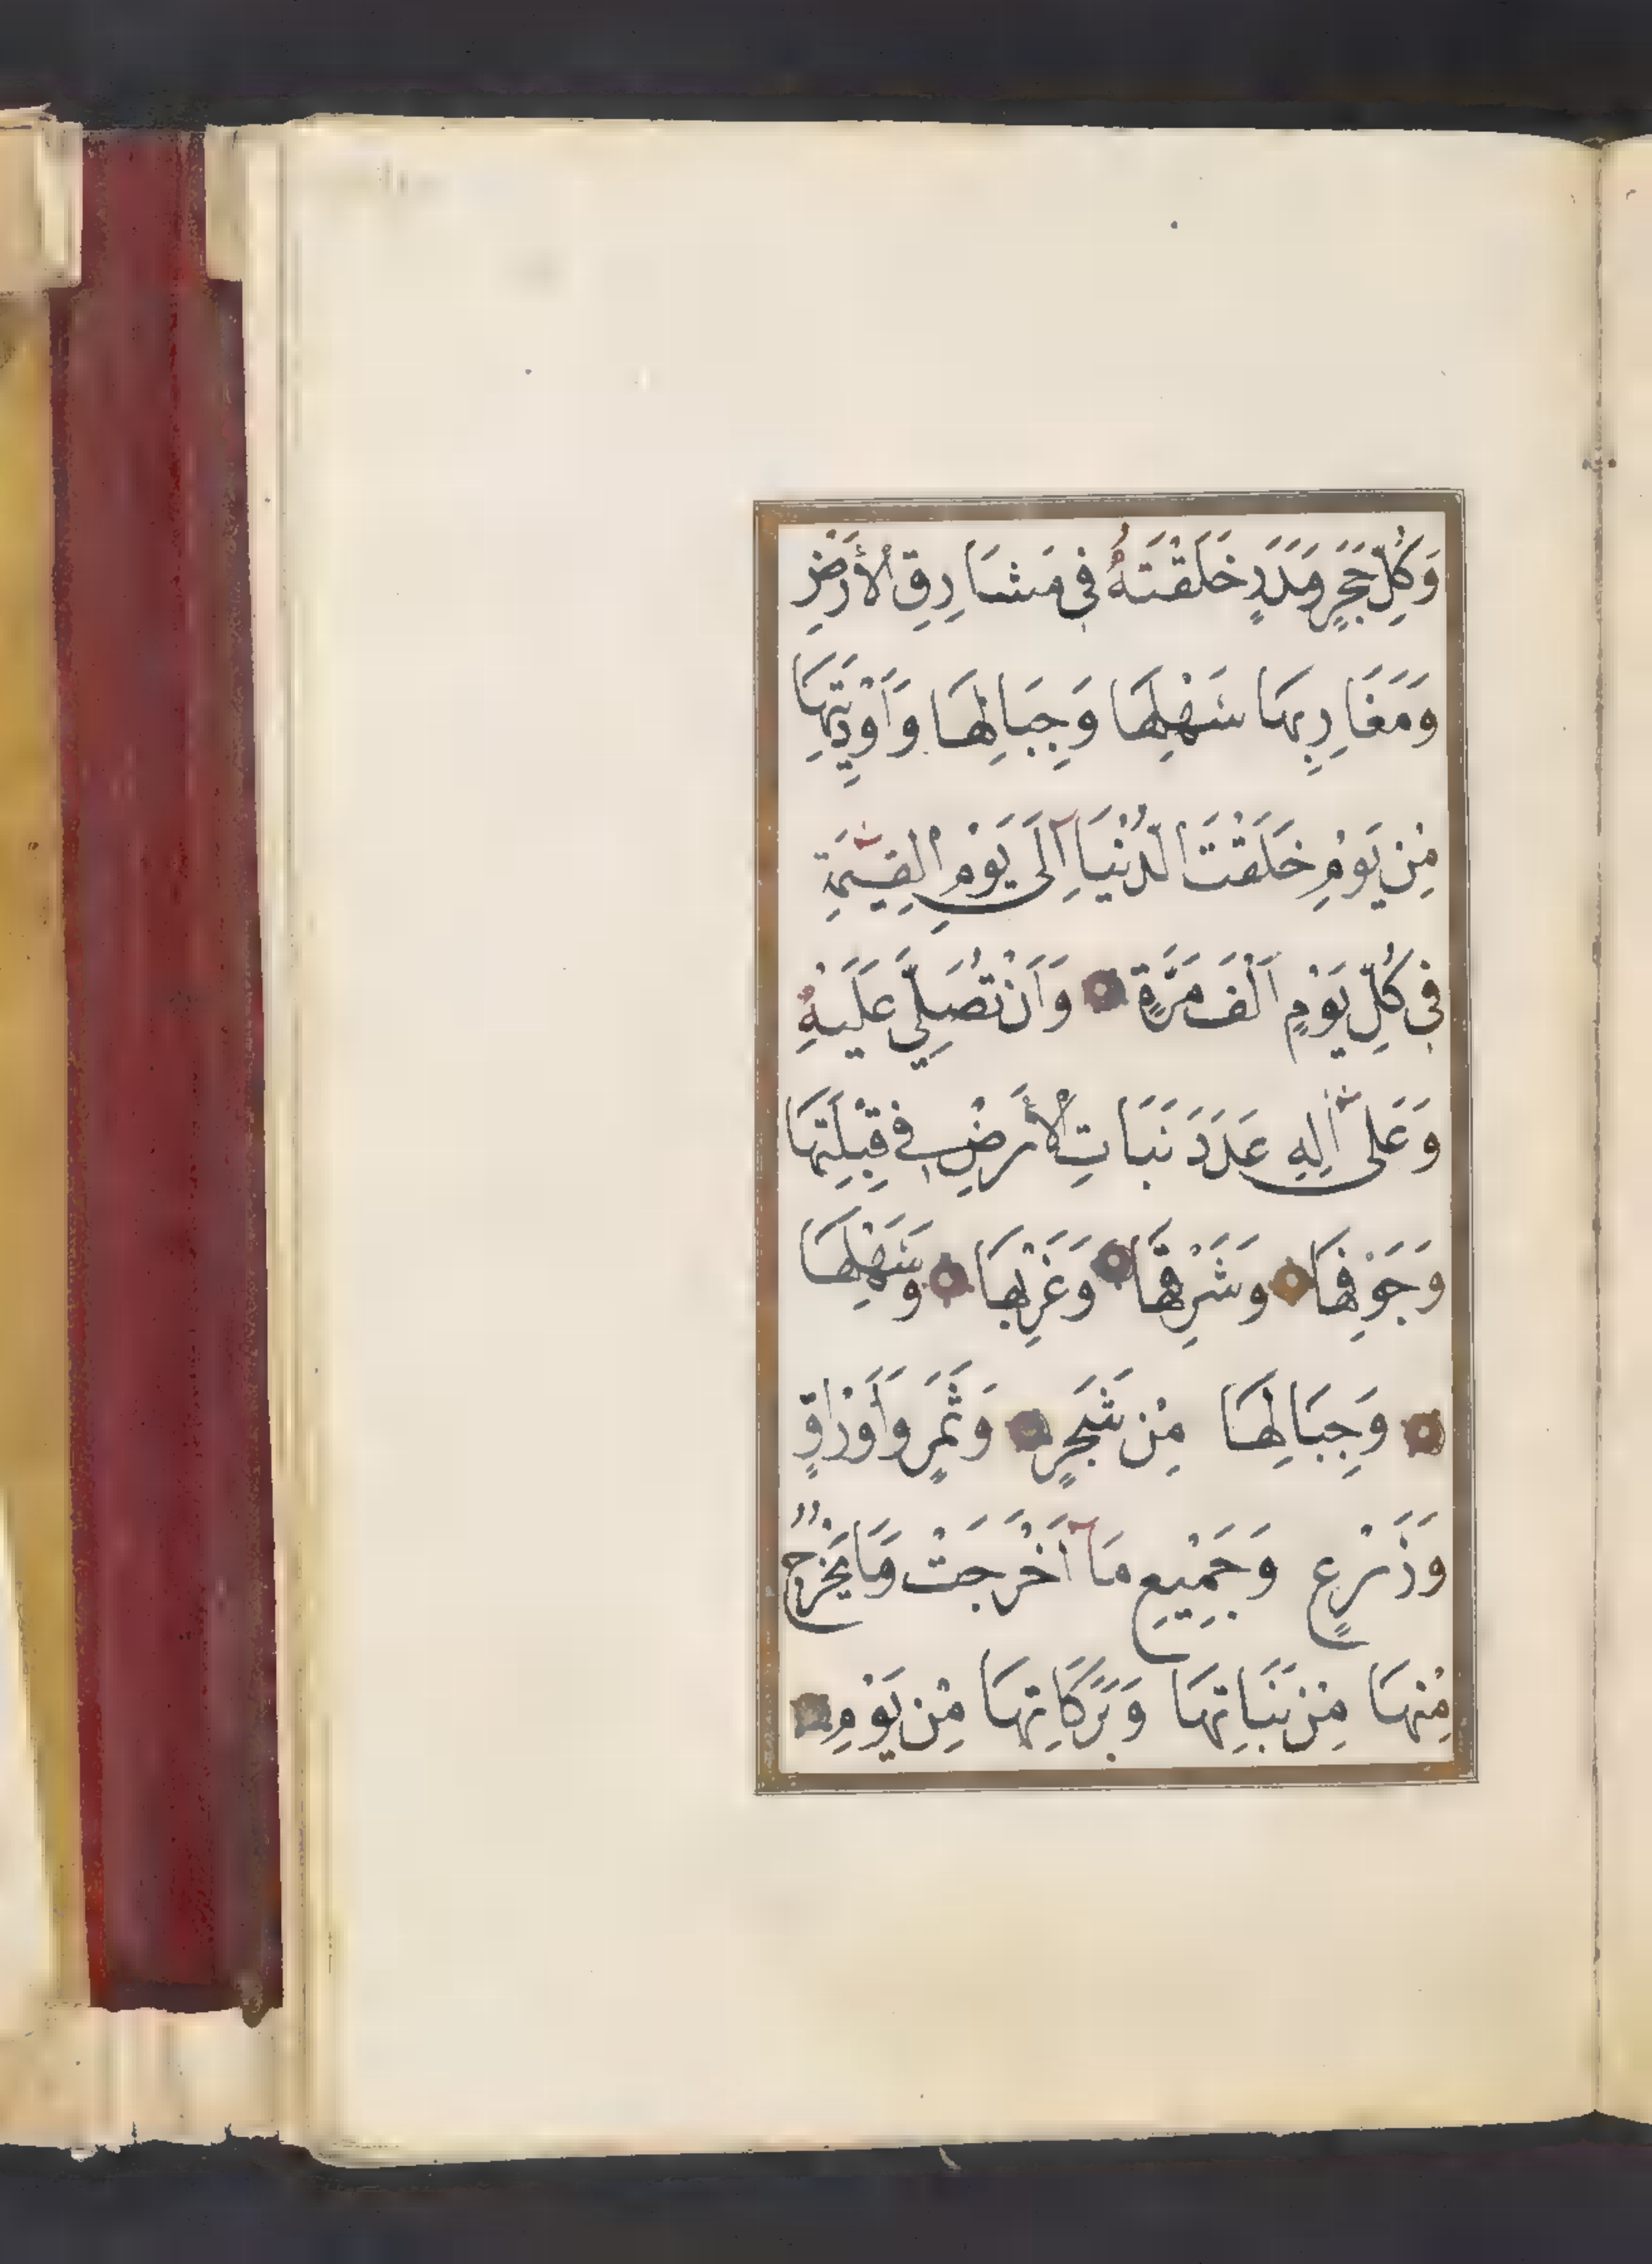 وَكُلِّ حَجَرٍ وَمَدَرٍ خَلَقْتَهُ فِي مَشَارِقِ الْأَرْضِ
وَمَغَارِبِهَا سَهْلِهَا وَجِبَالِهَا وَأَوْدِيَتِهَا
مِنْ يَوْمِ خَلَقْتَ الدُّنْيَا إِلَى يَوْمِ الْقِيٰمَةِ
فِي كُلِّ يَوْمٍ أَلْفَ مَرَّةٍ وَاَنْ تُصَلِّيَ عَلَيْهِ
وَعَلٰى اٰلِهِ عَدَدَ نَبَاتِ الْأَرْضِ فِي قِبْلَتِهَا
وَجَوْفِهَا وَشَرْقِهَا وَغَرْبِهَا وَسَهْلِهَا
وَجِبَالِهَا مِنْ شَجَرٍ وَثَمَرٍ وَأَوْرَاقٍ
وَزَرْعٍ وَجَمِيْعِ مَا اَخْرَجَتْ وَمَا يَخْرُجُ
مِنْهَا مِنْ نَبَاتِهَا وَبَرَكَاتِهَا مِنْ يَوْمِ